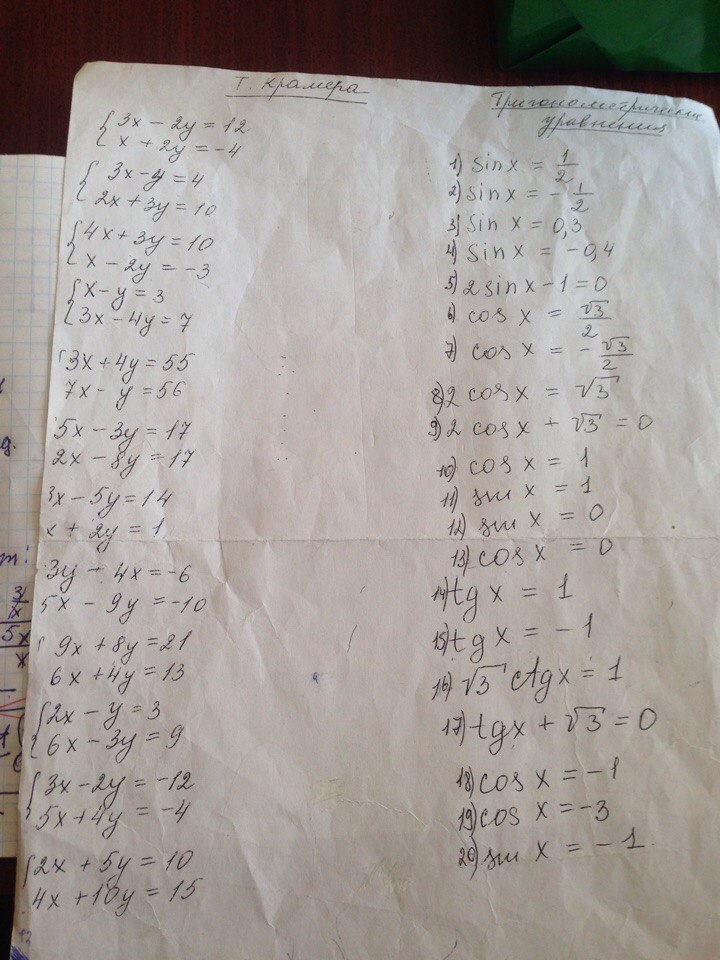 Т. Крамера
3x - 2y = 12
x + 2y = -4
3x - y = 4
2x + 3y = 10
4x + 3y = 10
x - 2y = -3
x - y = 3
3x - 4y = 7
3x + 4y = 55
7x - y = 56
5x - 3y = 17
2x - 8y = 17
3x - 5y = 14
x + 2y = 1
3y - 4x = -6
5x - 9y = -10
9x + 8y = 21
6x + 4y = 13
2x - y = 3
6x - 3y = 9
3x - 2y = -12
5x + 4y = -4
2x + 5y = 10
4x + 10y = 15
Тригонометрические
уравнения
1) sin x = 1/2
2) sin x = - 1/2
3) sin x = 0,3
4) sin x = -0,4
5) 2 sin x - 1 = 0
6) cos x = √3/2
7) cos x = - √3/2
8) 2 cos x = √3
9) 2 cos x + √3 = 0
10) cos x = 1
11) sin x = 1
12) sin x = 0
13) cos x = 0
14) tg x = 1
15) tg x = -1
16) √3 ctg x = 1
17) tg x + √3 = 0
18) cos x = -1
19) cos x = -3
20) sin x = -1